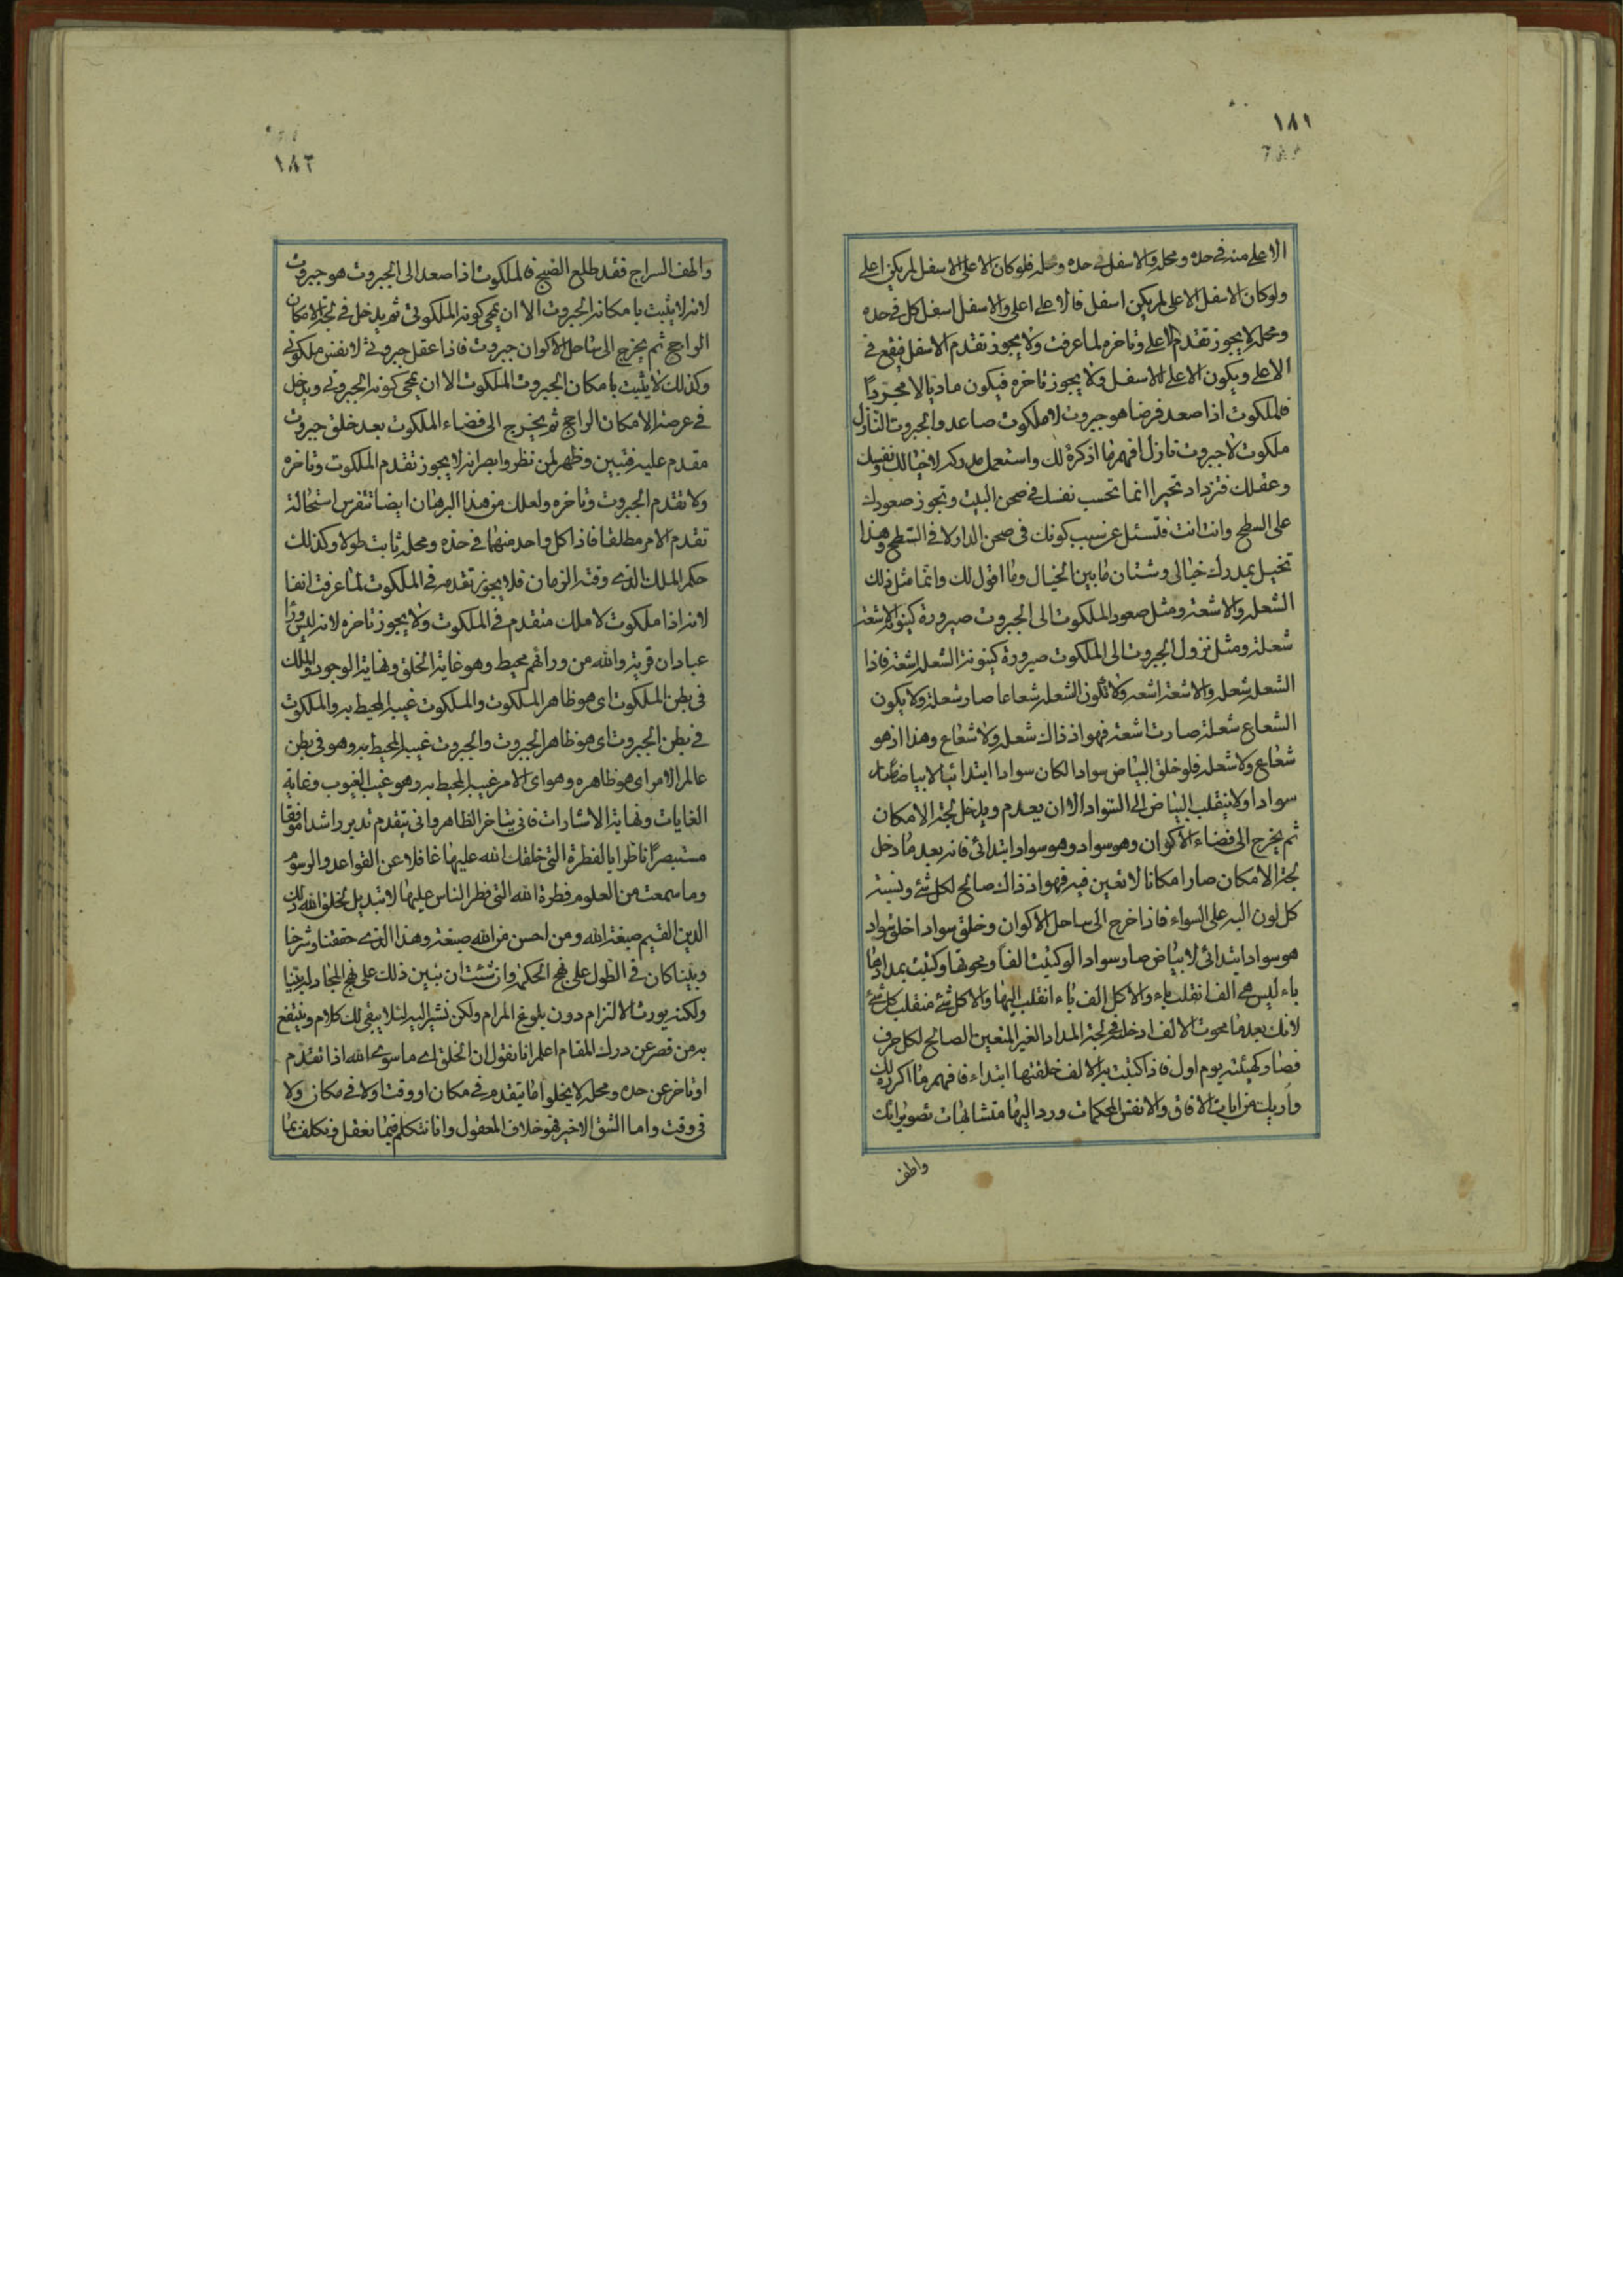 ١٨١
الاعلى منه في حده ومحله والاسفل في حده ومحله فلو كان الاعلى الاسفل لم يكن اعلى
ولو كان الاسفل الاعلى لم يكن اسفل فالاعلى اعلى والاسفل اسفل كل في حده
ومحله لا يجوز تقدم الاعلى وتاخره لما عرفت ولا يجوز تقدم الاسفل فيقع في
الاعلى ويكون الاعلى الاسفل ولا يجوز تاخره فيكون ماديا لا مجردا
فالملكوت اذا صعد فرضا هو جبروت لا ملكوت صاعد والجبروت النازل
ملكوت لا جبروت نازل افهم ما اذكره لك واستعمل مدركه لا خيالك ونفسك
وعقلك فتزداد تحيرا انما تحسب نفسك في صحن البيت وتجوز صعودك
على السطح وانت انت فتسئل عن سبب كونك في صحن الدار لا في السطح وهذا
تخيل بمدرك خيالي وشتان ما بين الخيال وما اقول لك وانما مثل ذلك
الشعلة والاشعة ومثل صعود الملكوت الى الجبروت صيرورة كينونة الاشعة
شعلة ومثل نزول الجبروت الى الملكوت صيرورة كينونة الشعلة اشعة فاذا
الشعلة شعلة والاشعة اشعة ولا تكون الشعلة شعاعا صار شعلة ولا يكون
الشعاع شعلة صارت اشعة فهو اذ ذاك شعلة ولا شعاع وهذا اذ هو
شعاع ولا شعلة فلو خلق البياض سوادا لكان سوادا ابتدائيا لا بياضا صار
سوادا ولا ينقلب البياض الى السواد الا ان يعدم ويدخل لجة الامكان
ثم يخرج الى فضاء الاكوان وهو سواد وهو سواد ابتدائى فانه بعد ما دخل
لجة الامكان صار امكانا لا تعين فيه فهو اذ ذاك صالح لكل شئ ونسبة
كل لون اليه على السواء فاذا خرج الى ساحل الاكوان وخلق سوادا خلق سواد
هو سواد ابتدائى لا بياض صار سوادا لو كتبت الفا ومحوتها وكتبت بمدادها
باء ليس هي الف انقلب باء والا كل الف باء انقلب اليها والا كل شئ منقلب كل شئ
لانك بعد ما محوت الالف ادخلته في لجة المداد الغير المتعين الصالح لكل حرف
فصار كهيئته يوم اول فاذا كتبت به الالف خلقتها ابتداء فافهم ما اكرره لك
واريك من ايات الافاق والانفس المحكمات ورد اليها متشابهات تصويراتك
واطف
١٨٢
واطف السراج فقد طلع الصبح فالملكوت اذا صعد الى الجبروت هو جبروت
لانه لا يثبت بامكانه الجبروت الا ان يمحى كونه الملكوتي ثم يدخل في لجة الامكان
الراجح ثم يخرج الى ساحل الاكوان جبروت فاذا عقل جبروتي لا نفس ملكوتي
وكذلك لا يثبت بامكان الجبروت الملكوت الا ان يمحى كونه الجبروتي ويدخل
في عرصة الامكان الراجح ثم يخرج الى فضاء الملكوت بعد خلق جبروت
مقدم عليه فتبين وظهر لمن نظر وابصر انه لا يجوز تقدم الملكوت وتاخره
ولا تقدم الجبروت وتاخره ولعلك من هذا البرهان ايضا تتفرس استحالة
تقدم الامر مطلقا فاذا كل واحد منها في حده ومحله ثابت طولا وكذلك
حكم الملك الذي وقته الزمان فلا يجوز تقدمه في الملكوت لما عرفت انفا
لانه اذا ملكوت لا ملك متقدم في الملكوت ولا يجوز تاخره لانه ليس وراء
عبادان قرية والله من ورائهم محيط وهو غاية الخلق ونهاية الوجود والملك
في بطن الملكوت اى هو ظاهر الملكوت والملكوت غيبه المحيط به والملكوت
في بطن الجبروت اى هو ظاهر الجبروت والجبروت غيبه المحيط به وهو في بطن
عالم الامر اى هو ظاهره وهو اى الامر غيبه المحيط به وهو غيب الغيوب وغاية
الغايات ونهاية الاشارات فانى يتاخر الظاهر وانى يتقدم تدبر راشدا موفقا
مستبصرا ناظرا بالفطرة التي خلقك الله عليها غافلا عن القواعد والرسوم
وما سمعت من العلوم فطرة الله التي فطر الناس عليها لا تبديل لخلق الله ذلك
الدين القيم صبغة الله ومن احسن من الله صبغة وهذا الذي حققنا وشرحنا
وبينا كان في الطول على نهج الحكمة وان شئت ان نبين ذلك على نهج المجادلة بينا
ولكنه يورث الالتزام دون بلوغ المرام ولكن نشير اليه لئلا يبقى لك كلام وينتفع
به من قصر عن درك المقام اعلم انا نقول ان الخلق اى ما سوى الله اذا تقدم
او تاخر عن حده ومحله لا يخلو اما يتقدم في مكان او وقت او لا في مكان ولا
في وقت واما الشق الاخير فهو خلاف المعقول وانا نتكلم فيما نعقل ونكلف بما